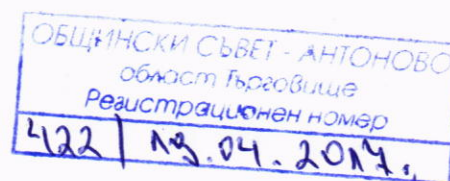 ОБЩИНСКИ СЪВЕТ - АНТОНОВО
област Търговище
Регистрационен номер
422 / 19.04.2017г.